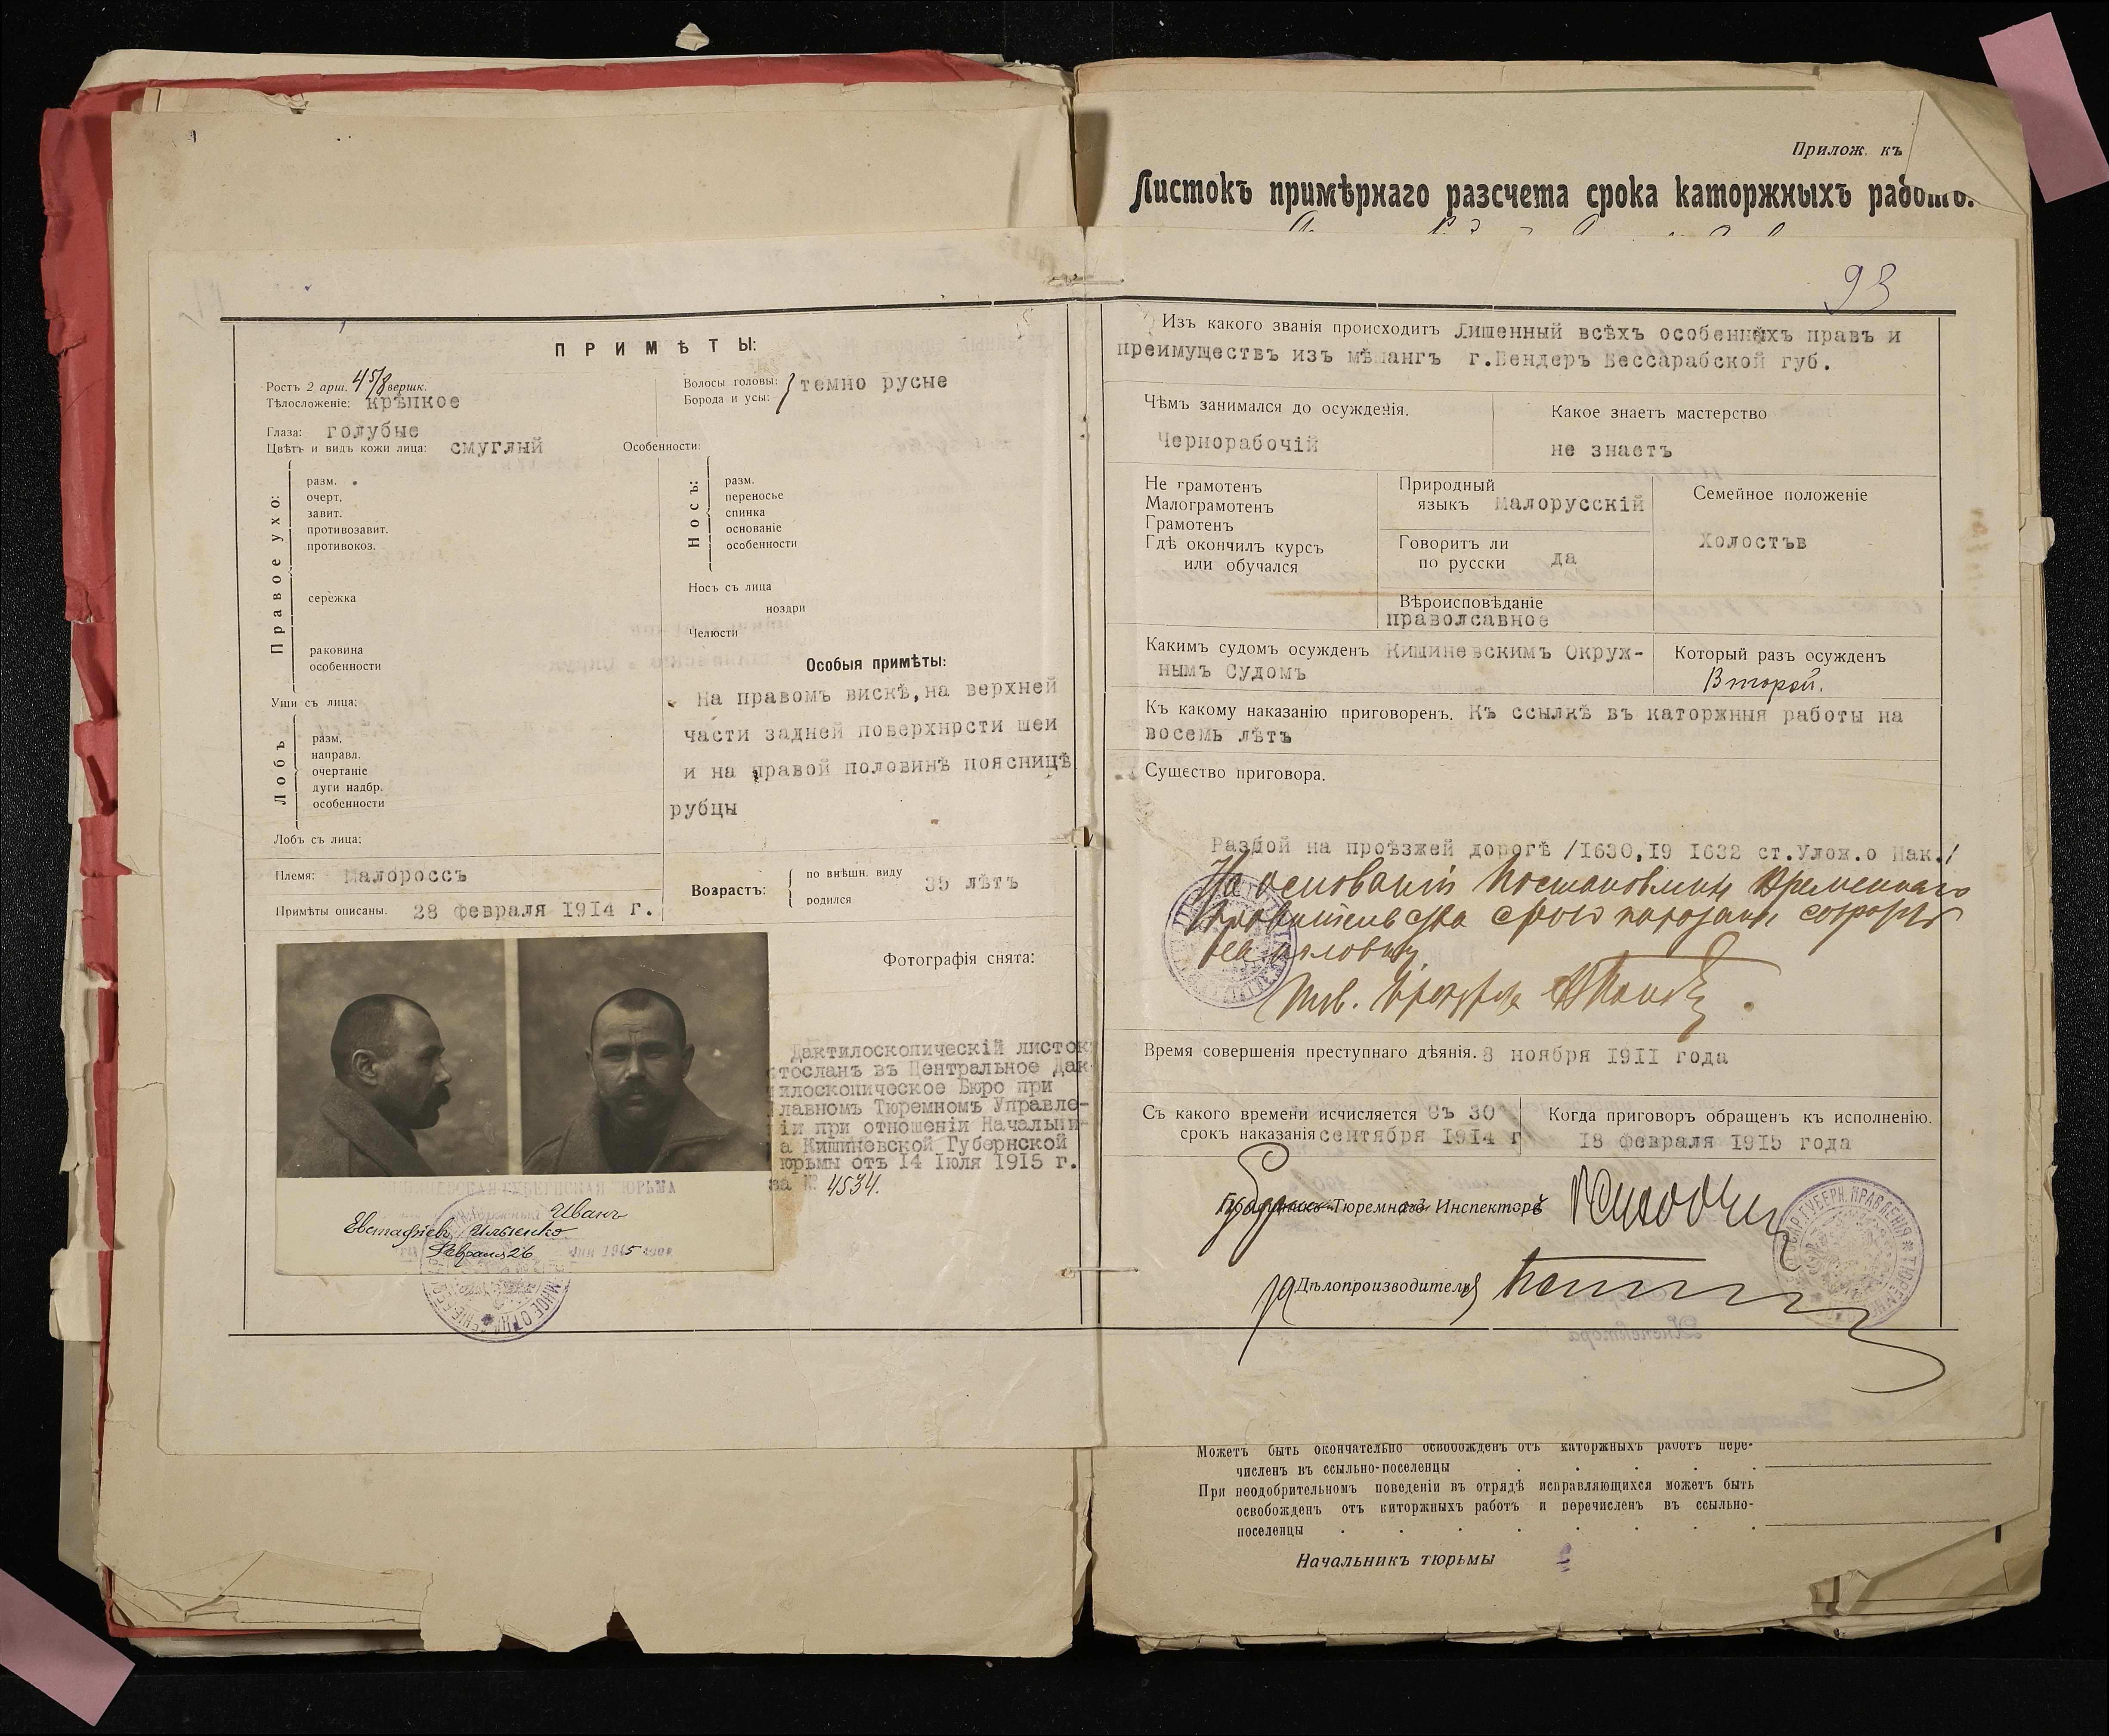 Прилож. къ
Листокъ примѣрнаго разсчета срока каторжныхъ работъ.
93
ПРИМѢТЫ:
Ростъ 2 арш. 4 5/8 вершк.
Тѣлосложеніе: крѣпкое
Глаза: голубые
Цвѣтъ и видъ кожи лица: смуглый
Волосы головы: темно русые
Борода и усы:
Особенности:
Правое ухо:
разм.
очерт.
завит.
противозавит.
противокоз.
сережка
раковина
особенности
Носъ:
разм.
переносье
спинка
основаніе
особенности
Носъ съ лица
ноздри
Челюсти
Уши съ лица:
Лобъ
разм.
направл.
очертаніе
дуги надбр.
особенности
Лобъ съ лица:
Особыя примѣты:
На правомъ вискѣ,на верхней
части задней поверхнрсти шеи
и на правой половинѣ поясницѣ
рубцы
Племя: Малороссъ
Примѣты описаны. 28 февраля 1914 г.
Возрастъ:
по внѣшн. виду 35 лѣтъ
родился
Фотографія снята:
Дактилоскопическій листок
тосланъ въ Центральное Дак
илоскопическое Бюро при
лавномъ Тюремномъ Управле-
іи при отношеніи Начальни-
а Кишиневской Губернской
юрьмы отъ 14 Іюля 1915 г.
за № 4534.
КИШИНЕВСКАЯ ГУБЕРНСКАЯ ТЮРЬМА
Иванъ
Евстафіевъ Ильенко
Февраля 26 1915
Изъ какого званія происходитъ Лишенный всѣхъ особенныхъ правъ и
преимуществъ изъ мѣщангъ г.Бендеръ Бессарабской губ.
Чѣмъ занимался до осужденія.
Чернорабочій
Какое знаетъ мастерство
не знаетъ
Не грамотенъ
Малограмотенъ
Грамотенъ
Гдѣ окончилъ курсъ
или обучался
Природный
языкъ Малорусскій
Говоритъ ли
по русски да
Вѣроисповѣданіе
праволсавное
Семейное положеніе
Холостъв
Какимъ судомъ осужденъ Кишиневскимъ Окруж-
нымъ Судомъ
Который разъ осужденъ
Второй.
Къ какому наказанію приговоренъ. Къ ссылкѣ въ каторжныя работы на
восемь лѣтъ
Существо приговора.
Разбой на проѣзжей дорогѣ /1630,19 1632 ст.Улож.о Нак./
На основаніи Постановленія Временнаго
Правительства срокъ наказанія сокращенъ
на половину
Тов. Прокурора
Время совершенія преступнаго дѣянія. 8 ноября 1911 года
Съ какого времени исчисляется Съ 30
срокъ наказанія сентября 1914 г
Когда приговоръ обращенъ къ исполненію.
18 февраля 1915 года
Тюремнаго Инспектора
Дѣлопроизводителя
Можетъ быть окончательно освобожденъ отъ каторжныхъ работъ пере-
численъ въ ссыльно-поселенцы
При неодобрительномъ поведеніи въ отрядѣ исправляющихся можетъ быть
освобожденъ отъ каторжныхъ работъ и перечисленъ въ ссыльно-
поселенцы
Начальникъ тюрьмы